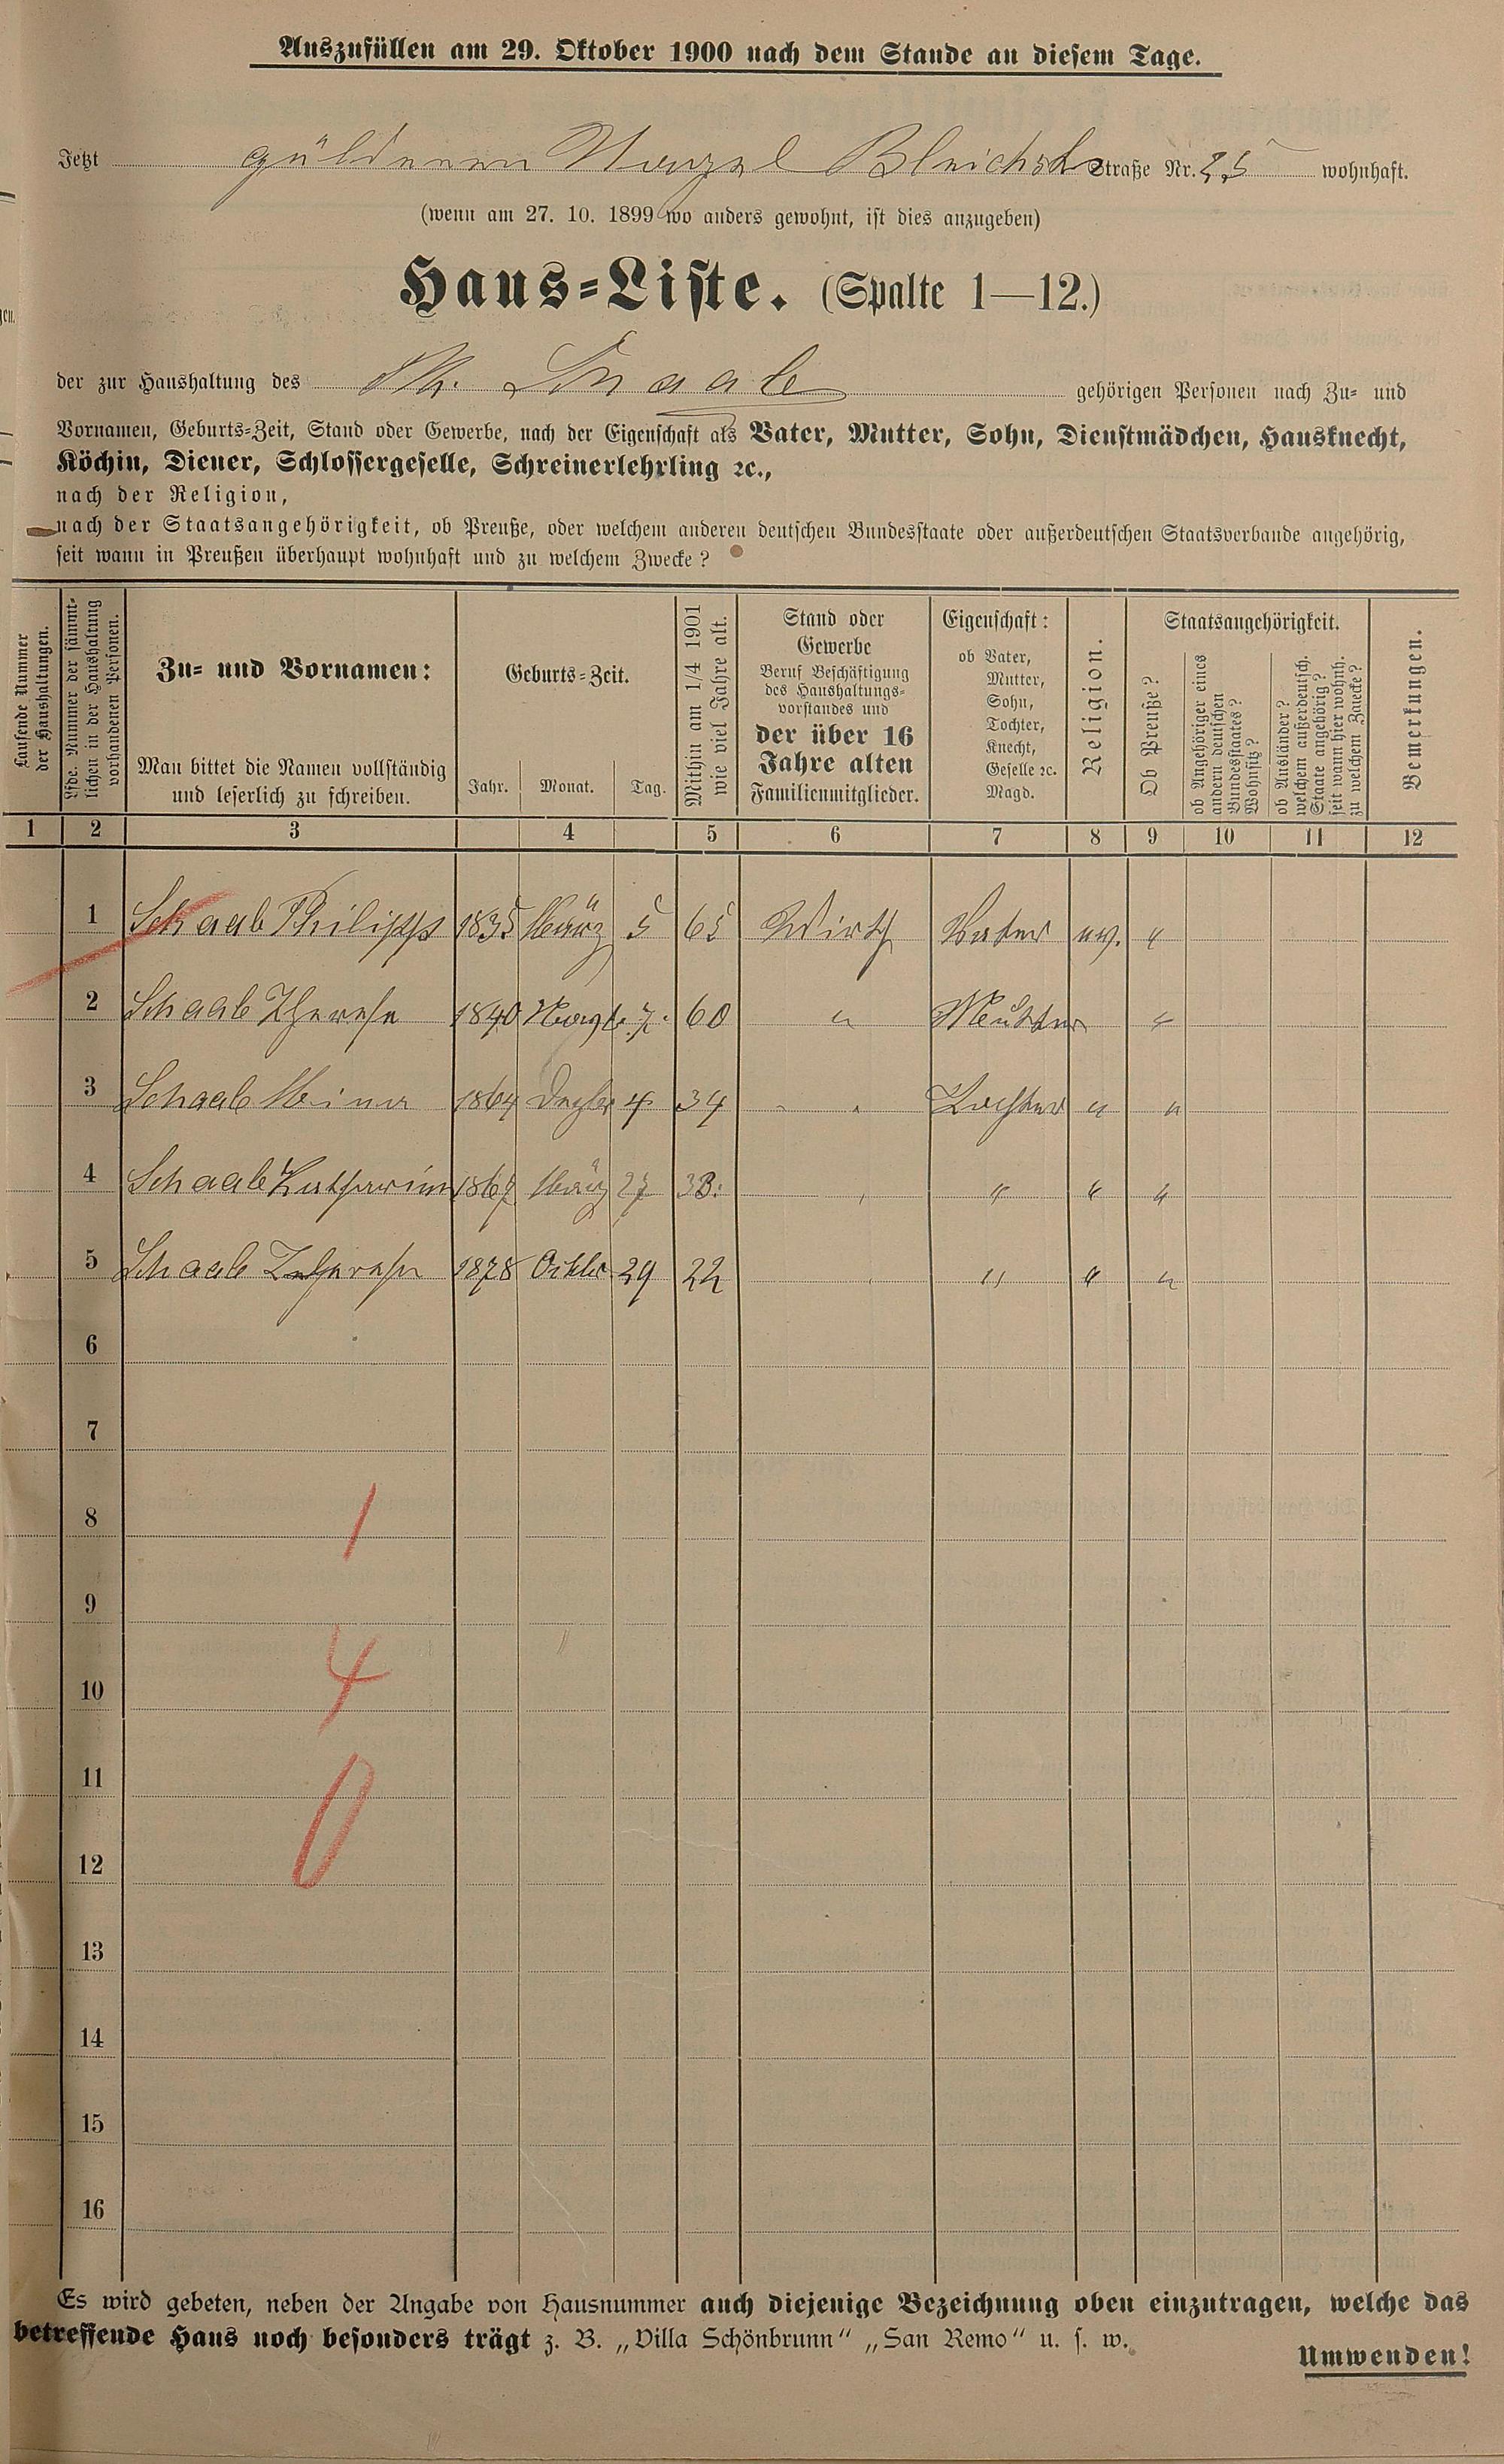 Auszufüllen am 29. Oktober 1900 nach dem Stande an diesem Tage.
Jetzt güldenen Bleichstr Straße Nr. 25 wohnhaft.
(wenn am 27. 10. 1899 wo anders gewohnt, ist dies anzugeben)
Haus-Liste. (Spalte 1—12.)
der zur Haushaltung des Ph. Schaab gehörigen Personen nach Zu- und
Vornamen, Geburts-Zeit, Stand oder Gewerbe, nach der Eigenschaft als Vater, Mutter, Sohn, Dienstmädchen, Hausknecht,
Köchin, Diener, Schlossergeselle, Schreinerlehrling ꝛc.,
nach der Religion,
nach der Staatsangehörigkeit, ob Preuße, oder welchem anderen deutschen Bundesstaate oder außerdeutschen Staatsverbande angehörig,
seit wann in Preußen überhaupt wohnhaft und zu welchem Zwecke?
Laufende Nummer
der Haushaltungen.
Lfde. Nummer der sämmt-
lichen in der Haushaltung
vorhandenen Personen.
Zu- und Vornamen:
Man bittet die Namen vollständig
und leserlich zu schreiben.
Geburts-Zeit.
Jahr. Monat. Tag.
Mithin am 1/4 1901
wie viel Jahre alt.
Stand oder
Gewerbe
Beruf Beschäftigung
des Haushaltungs-
vorstandes und
der über 16
Jahre alten
Familienmitglieder.
Eigenschaft:
ob Vater,
Mutter,
Sohn,
Tochter,
Knecht,
Geselle ꝛc.
Magd.
Religion.
Staatsangehörigkeit.
Ob Preuße?
ob Angehöriger eines
andern deutschen
Bundesstaates?
Wohnsitz?
ob Ausländer?
welchem außerdeutsch.
Staate angehörig?
seit wann hier wohnh.
zu welchem Zwecke?
Bemerkungen.
1 2 3 4 5 6 7 8 9 10 11 12
1 Schaab Philipp 1835 März 5 65 Wirth Vater ev. "
2 Schaab Therese 1840 7. 60 " Mutter "
3 Schaab Mina 1864 Dezbr 4 34 Tochter " "
4 Schaab Katharina 1867 März 27 33. " " "
5 Schaab Therese 1878 Octbr 29 22 " " "
6
7
8 1
9
10 4
11
12 0
13
14
15
16
Es wird gebeten, neben der Angabe von Hausnummer auch diejenige Bezeichnung oben einzutragen, welche das
betreffende Haus noch besonders trägt z. B. „Villa Schönbrunn" „San Remo" u. s. w.
Umwenden!